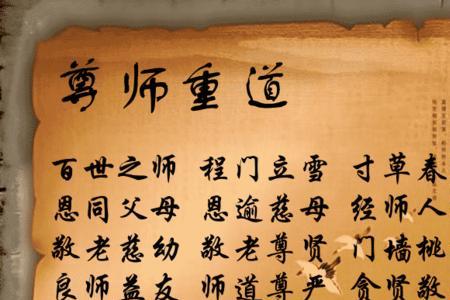 尊师重道
百世之师 程门立雪 寸草春
恩同父母 恩逾慈母 经师人
敬老慈幼 敬老尊贤 门墙桃
良师益友 师道尊严 贪贤敬